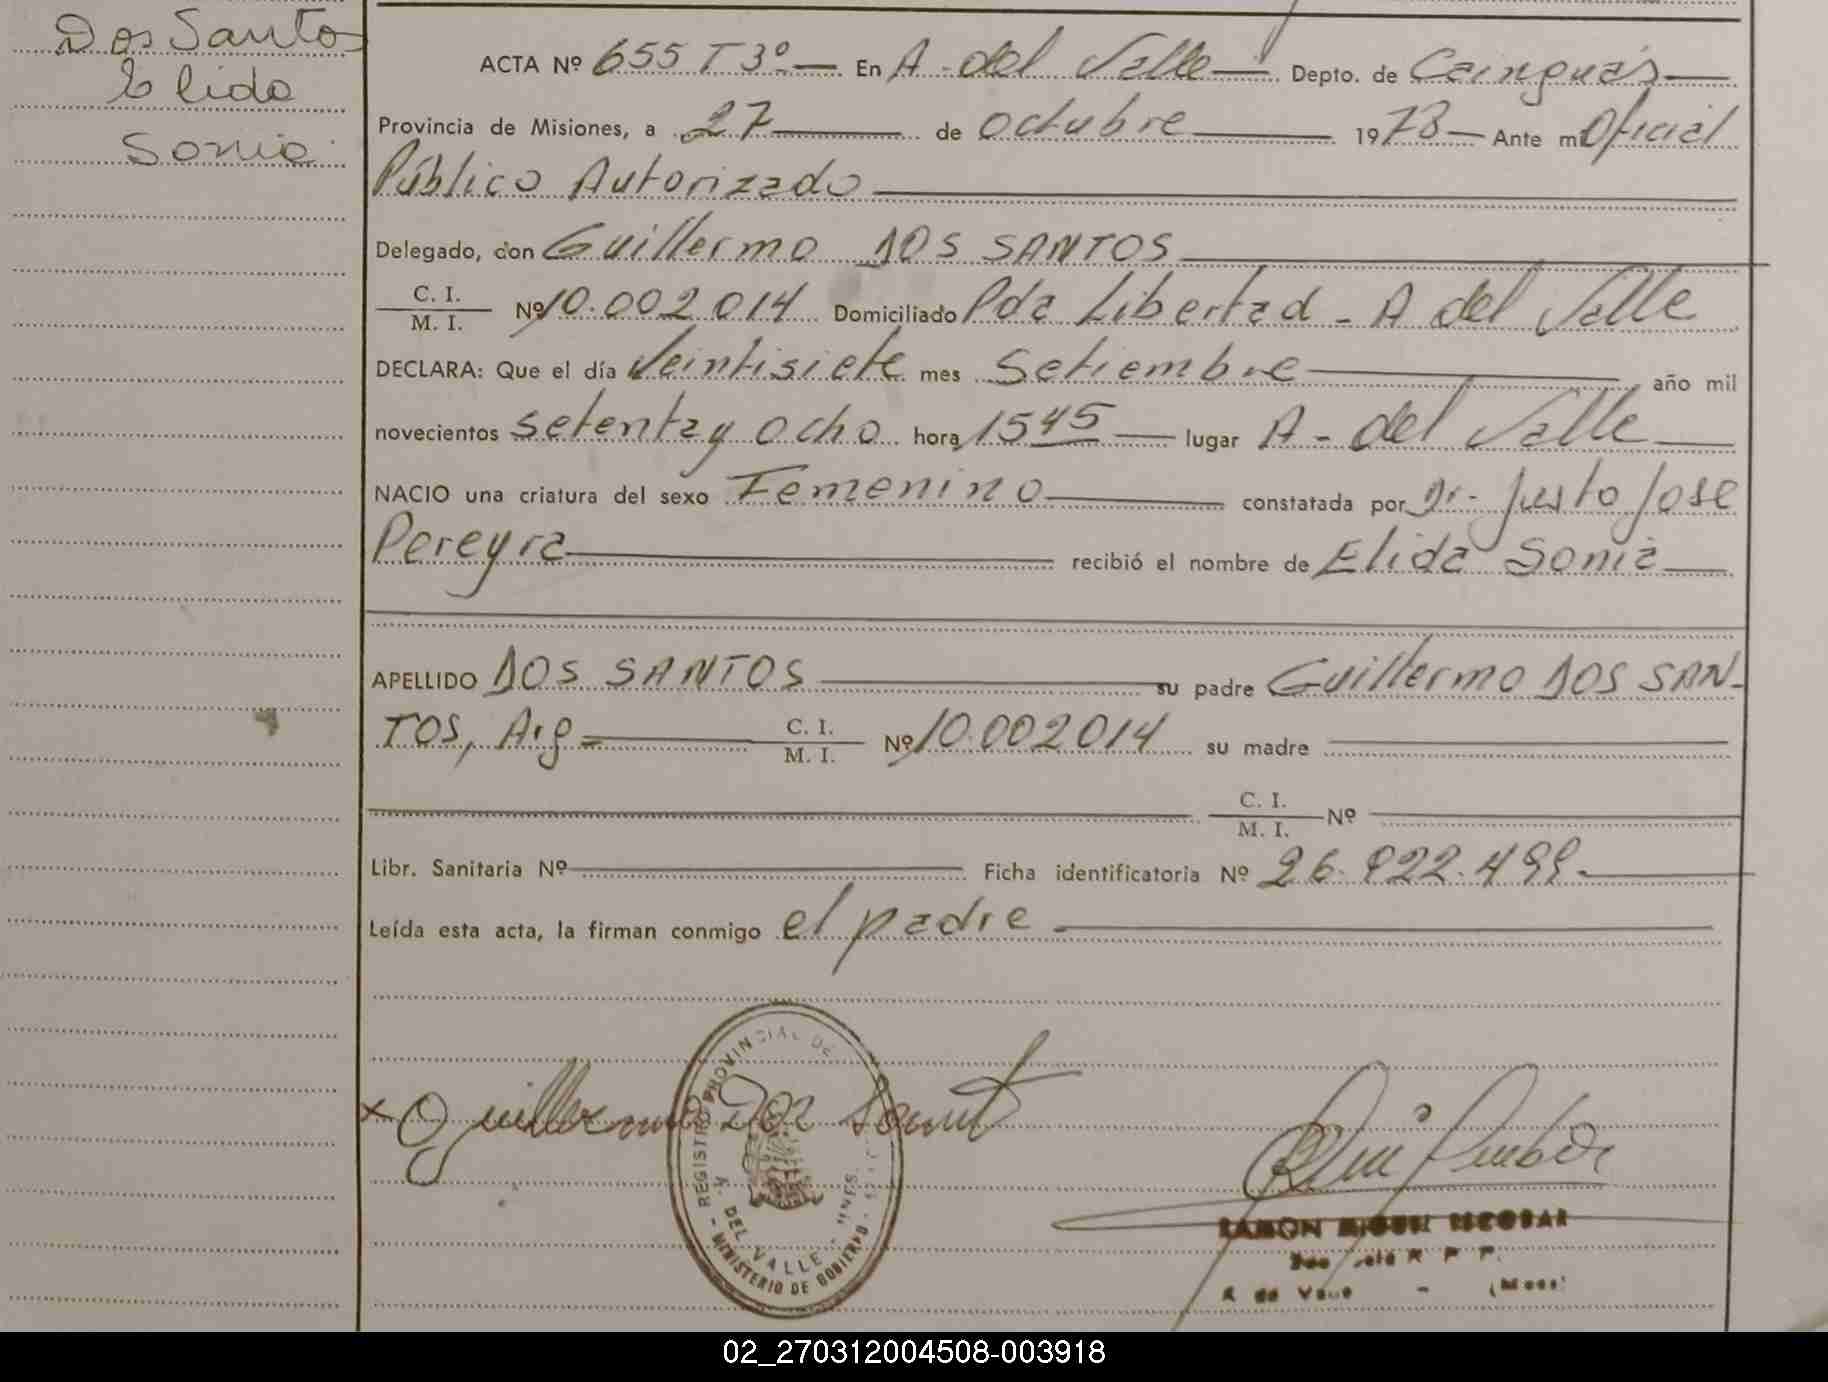 Dos Santos
Elida
Sonia
ACTA Nº 655 T 3º — En A. del Valle — Depto. de Cainguás —
Provincia de Misiones, a 27 — de octubre — 1978 — Ante mi Oficial
Público Autorizado —
Delegado, don Guillermo DOS SANTOS —
C. I.
M. I. Nº 10.002014 Domiciliado Pda Libertad - A del Valle
DECLARA: Que el día Veintisiete mes Setiembre — año mil
novecientos setenta y ocho hora 1545 — lugar A - del Valle —
NACIO una criatura del sexo Femenino — constatada por Dr. Justo Jose
Pereyra — recibió el nombre de Elida Sonia —
APELLIDO DOS SANTOS — su padre Guillermo DOS SAN-
TOS, Arg — C. I.
M. I. Nº 10.002014 su madre —
C. I.
M. I. Nº —
Libr. Sanitaria Nº — Ficha identificatoria Nº 26.822.499. —
Leída esta acta, la firman conmigo el padre —
x Guillermo Dos Sant
REGISTRO PROVINCIAL DE
A. DEL VALLE - MNES.
- MINISTERIO DE GOBIERNO -
RAMON MIGUEL ESCOBAR
A de Valle - (Mnes)
02_270312004508-003918